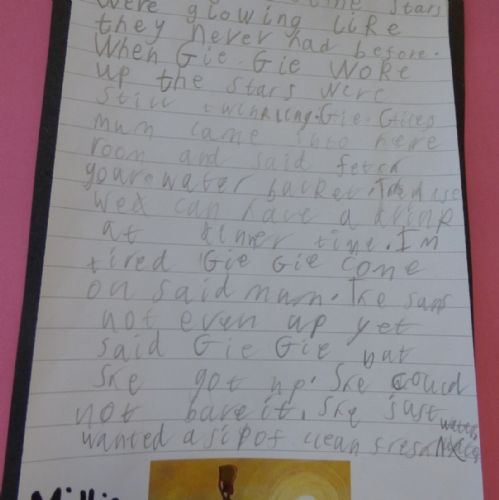 stars
were glowing like
they never had before.
When Gie-Gie woke
up the stars were
still twinkling. Gie-Gies
mum came into here
room and said fetch
youre water backet
can have a drink
at dinner time. I'm
tired Gie Gie come
on said mum. The suns
not even up yet
said Gie Gie
She got up. She could
not bare it. She just
water
wanted a sip of clean fresh